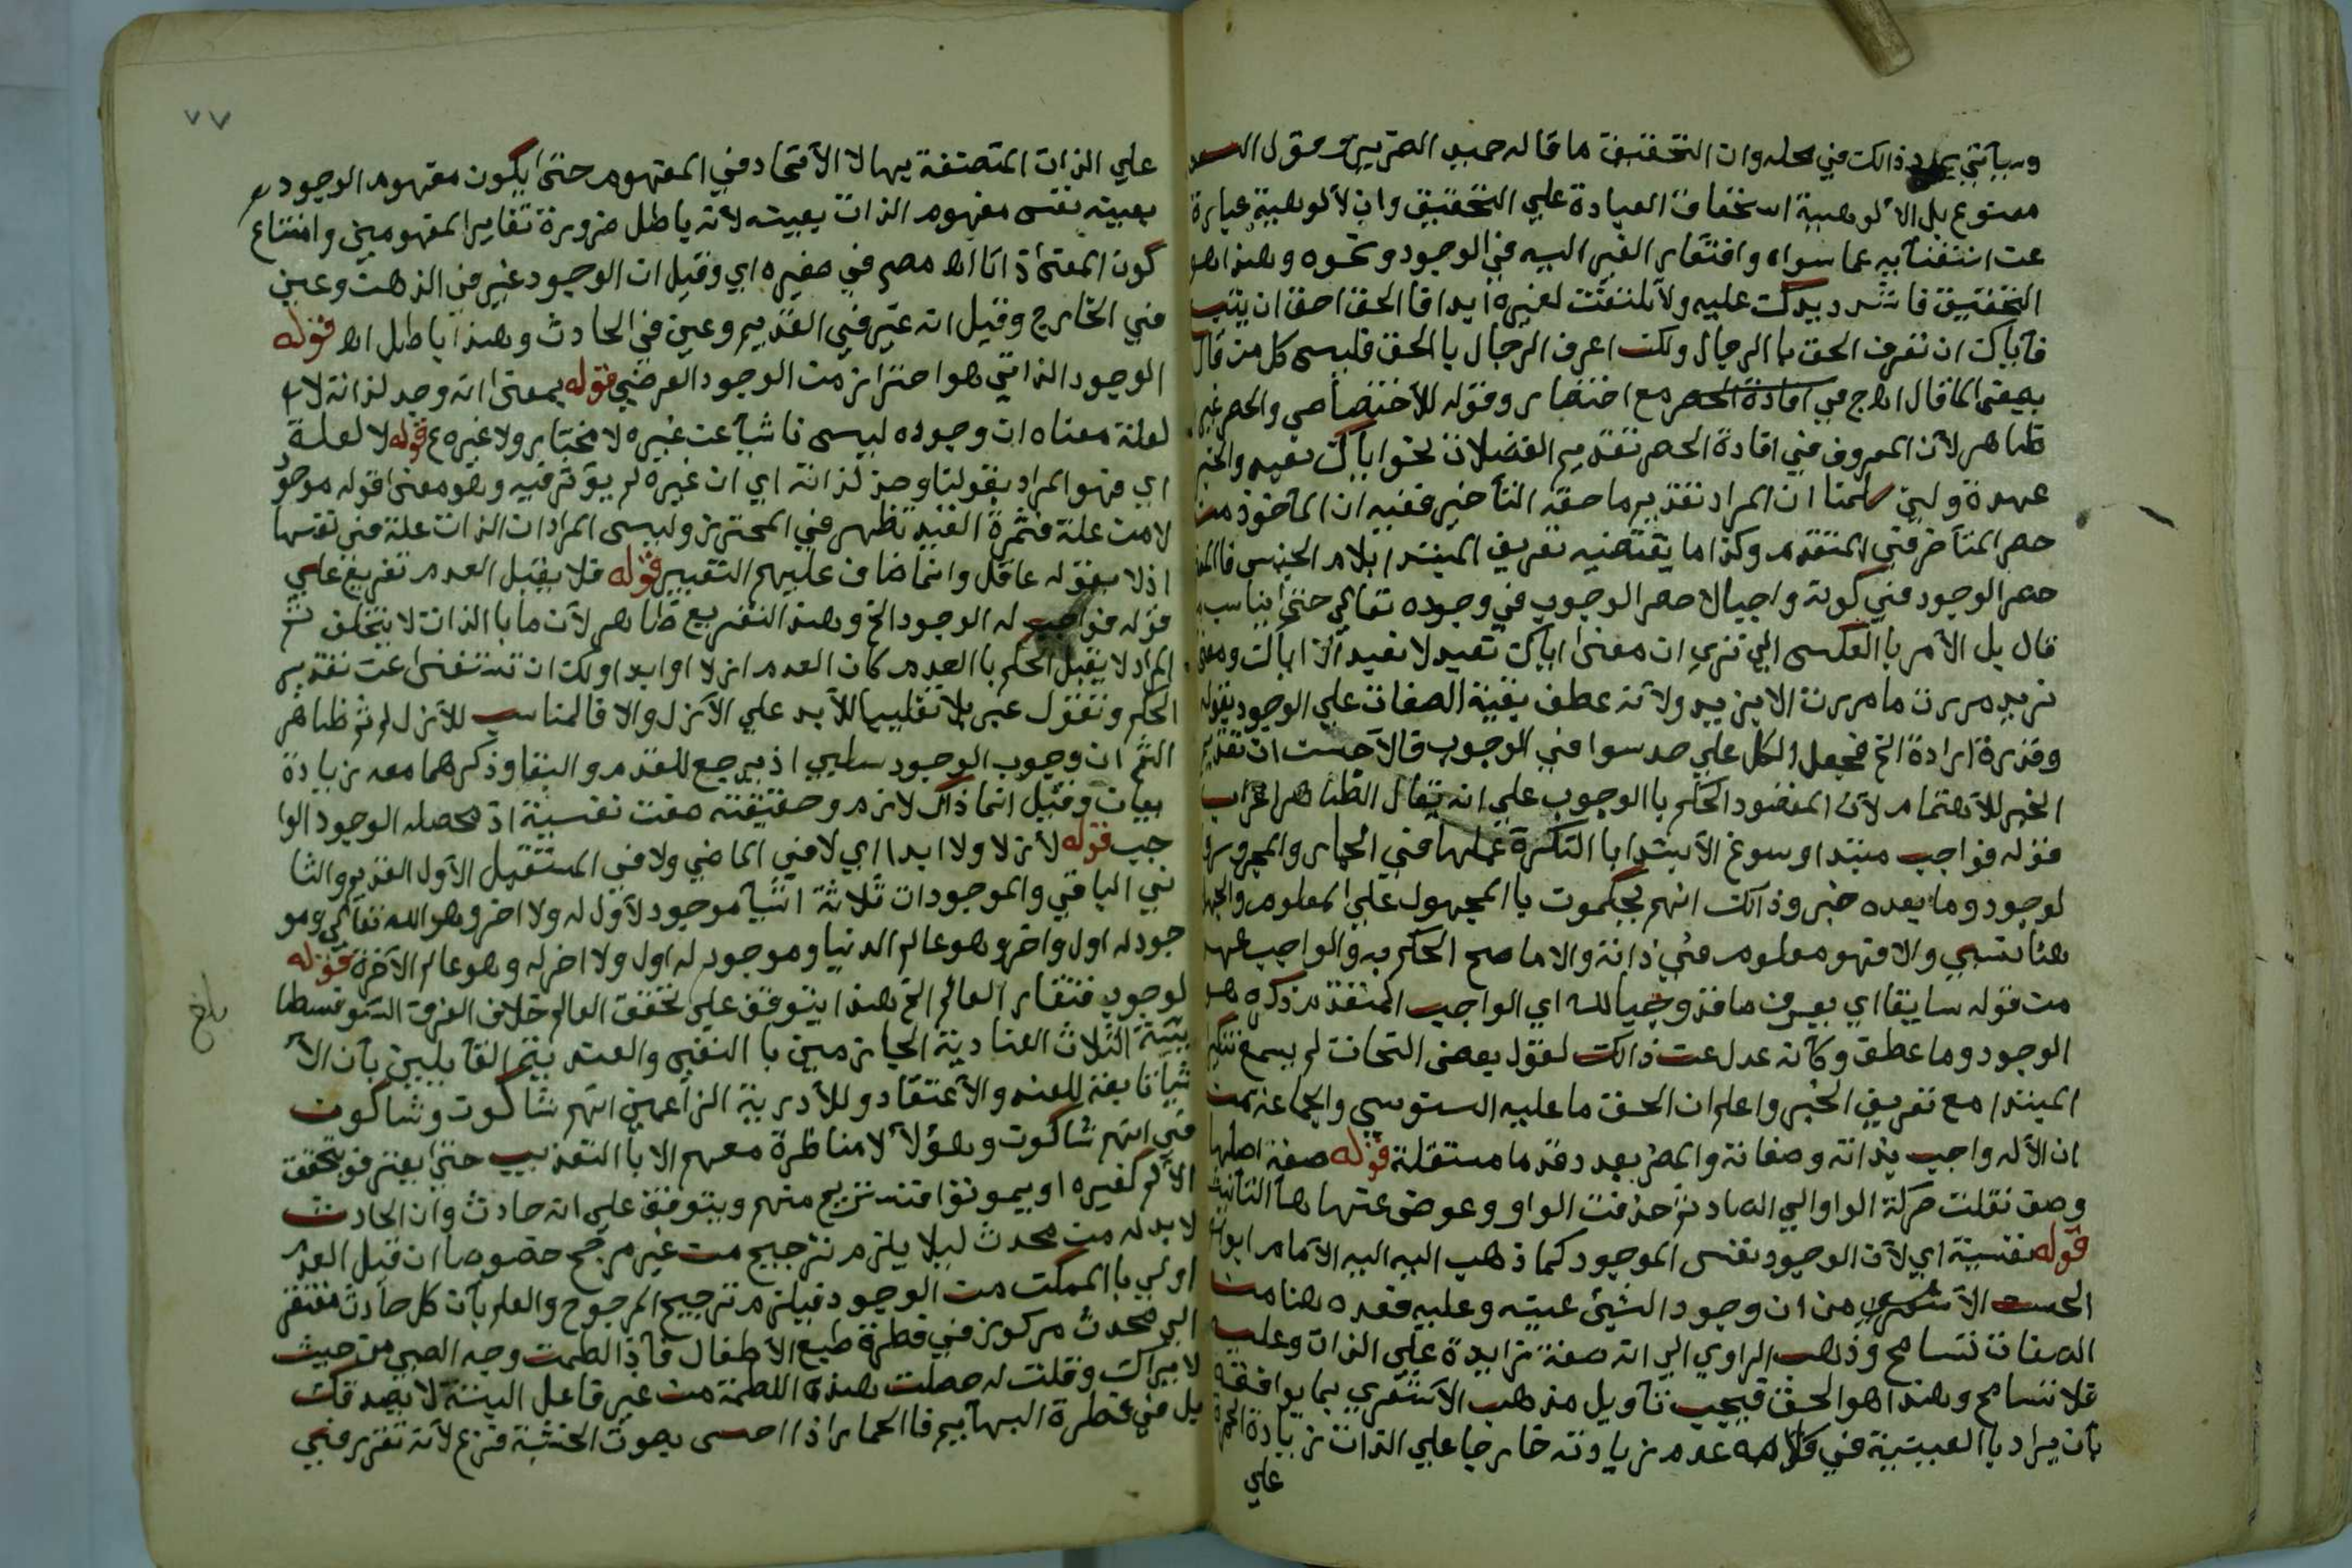 وسيأتي بعد ذالك في محله وان التحقيق ما قاله حميد الضرير وقول السعد
ممنوع بل الألوهية استحقاق العبادة علي التحقيق وان لألوهية عبارة
عن استغنآيه عما سواه وافتقار الغير اليه في الوجود ونحوه وهذا هو
التحقيق فاشدد يدك عليه ولا تلتفت لغيره ابدا فا الحق احق ان يتبع
فآياك ان تعرف الحق با الرجال ولكن اعرف الرجال با الحق فليس كل من قال
افادة الحصر مع اختصار وقوله للأختصاص والحصر غير
ظاهر لأن المعروف في افادة الحصر تقديم الفضلات نحو اياك نعبد والخبر
عهدة ولين سلمنا ان المراد تقديم ما حقه التأخير ففيه ان المأخوذ من
حصر المتأخر في المتقدم وكذا ما يقتضيه تعريف المبتدا بلام الجنس فا
حصر الوجود في كونه واجبا لا حصر الوجوب في وجوده تعالي حتى يناسب
قال بل الأمر با العكس الي تري ان معنى اياك نعبد لا نعبد الا اياك ومعنى
بزيد مررت ما مررت الا بزيد ولأنه عطف بقية الصفات علي الوجود بقوله
وقدرة ارادة الخ فجعل الكل علي حد سوا في الوجوب فالآحسن ان تقديم
الخبر للأهتمام لأن المقصود الحكم با الوجوب علي انه يقال الظاهر اعراب
قوله فواجب مبتدا وسوغ الأبتدا با النكرة عملها في الجار والمجرور
لوجود وما بعده خبر وذالك انهم يحكمون با المجهول علي المعلوم والجهل
هنا نسبي والا فهو معلوم في ذاته والا ما صح الحكم به والواجب عهد
من قوله سابقا اي يعرف ما قد وجبا لله اي الواجب المتقدم ذكره هو
الوجود وما عطف وكأنه عدل عن ذالك لقول بعض النحات لم يسمع تنكير
المبتدا مع تعريف الخبر واعلم ان الحق ما عليه السنوسي والجماعة من
ان الأله واجب بذاته وصفاته والمضر بعد دقد ما مستقلة قوله صفة اصلها
وصف نقلت حركة الواو الي الصاد ثم حذفت الواو وعوض عنها هآ التانيث
قوله نفسية اي لأن الوجود نفس الموجود كما ذهب اليه اليه الأمام ابوا
الحسن الأشعري من ان وجود الشيئ عينه وعليه فعده هنا من
الصفات تسامح وذهب الراوي الي انه صفة زايدة علي الذات وعليه
فلا تسامح وهذا هو الحق فيجب تأويل مذهب الأشعري بما يوافقه
بأن يراد با العينية في كلامه عدم زيادته خارجا علي الذات زيادة
علي
٧٧
علي الذات المتصفة بها لا الأتحاد في المفهوم حتى يكون مفهوم الوجود
بعينه نفس مفهوم الذات بعينه لأنه باطل ضرورة تغاير المفهومين وامتناع
كون المعنى ذاتا اه مصر في صغيره اي وقيل ان الوجود غير في الذهن وعين
في الخارج وقيل انه غير في القديم وعين في الحادث وهذا باطل اه قوله
الوجود الذاتي هو احتراز من الوجود العرضي قوله بمعنى انه وجد لذاته لا
لعلة معناه ان وجوده ليس ناشيآ عن غيره لا مختار ولا غيره ع قوله لا لعلة
اي فهو المراد بقولنا وجد لذاته اي ان غيره لم يؤثر فيه وهو معنى قوله موجود
لا من علة فثمرة القيد تظهر في المحترز وليس المراد ان الذات علة في نفسها
اذ لا يقوله عاقل وانما ضاف عليهم التعبير قوله فلا يقبل العدم تفريع علي
قوله فواجب له الوجود الخ وهذا التفريع ظاهر لأن ما با الذات لا يتخلف ثم
المراد لا يقبل الحكم با العدم كان العدم ازلا او ابدا ولك ان تستغنى عن تقدير
الحكم وتقول عبر بلا تغليبا للأبد علي الأزل والا فالمناسب للأزل لم ثم ظاهر
الثم ان وجوب الوجود سلبي اذ يرجع للقدم والبقا وذكرهما معه زيادة
بيان وقيل انما ذاك لازم وحقيقته صفت نفسية اذ محصله الوجود الوا
جب قوله لأزلا ولا ابدا اي لا في الماضي ولا في المستقبل الأول القديم والثا
ني الباقي والموجودات ثلاثة اشيآ موجود لأول له ولا اخر وهو الله تعآلي ومو
جود له اول واخر وهو عالم الدنيا وموجود له اول ولا اخر له وهو عالم الآخرة قوله
لوجود فتقار العالم الخ هذا يتوقف علي تحقق العالم خلاف الفرق السوفسطا
بلغ
ئية الثلاث العنادية الجازمين با النفي والعندية القآيلين بأن الأ
شيا تابعة للعند والأعتقاد وللأدرية الزاعمين انهم شاكون وشاكون
في انهم شاكون وهؤلآ لا مناظرة معهم الا بالتعذيب حتى يعترفو بتحقق
الألم كغيره او يموتوا فتستريح منهم ويتوقف علي انه حادث وان الحادث
لا بد له من محدث ليلا يلزم ترجيح من غير مرجح خصوصا ان قيل العدم
اولي با الممكن من الوجود فيلزم ترجيح المرجوح والعلم بأن كل حادث مفتقر
الي محدث مركوز في فطرة طبع الأطفال فآذا لطمت وجه الصبي من حيث
لا يراك وقلت له حصلت هذه اللطمة من غير فاعل البتة لا يصدقك
بل في فطرة البهآيم فا الحمار اذا احس بصوت الخشبة فزع لأنه تقرر في